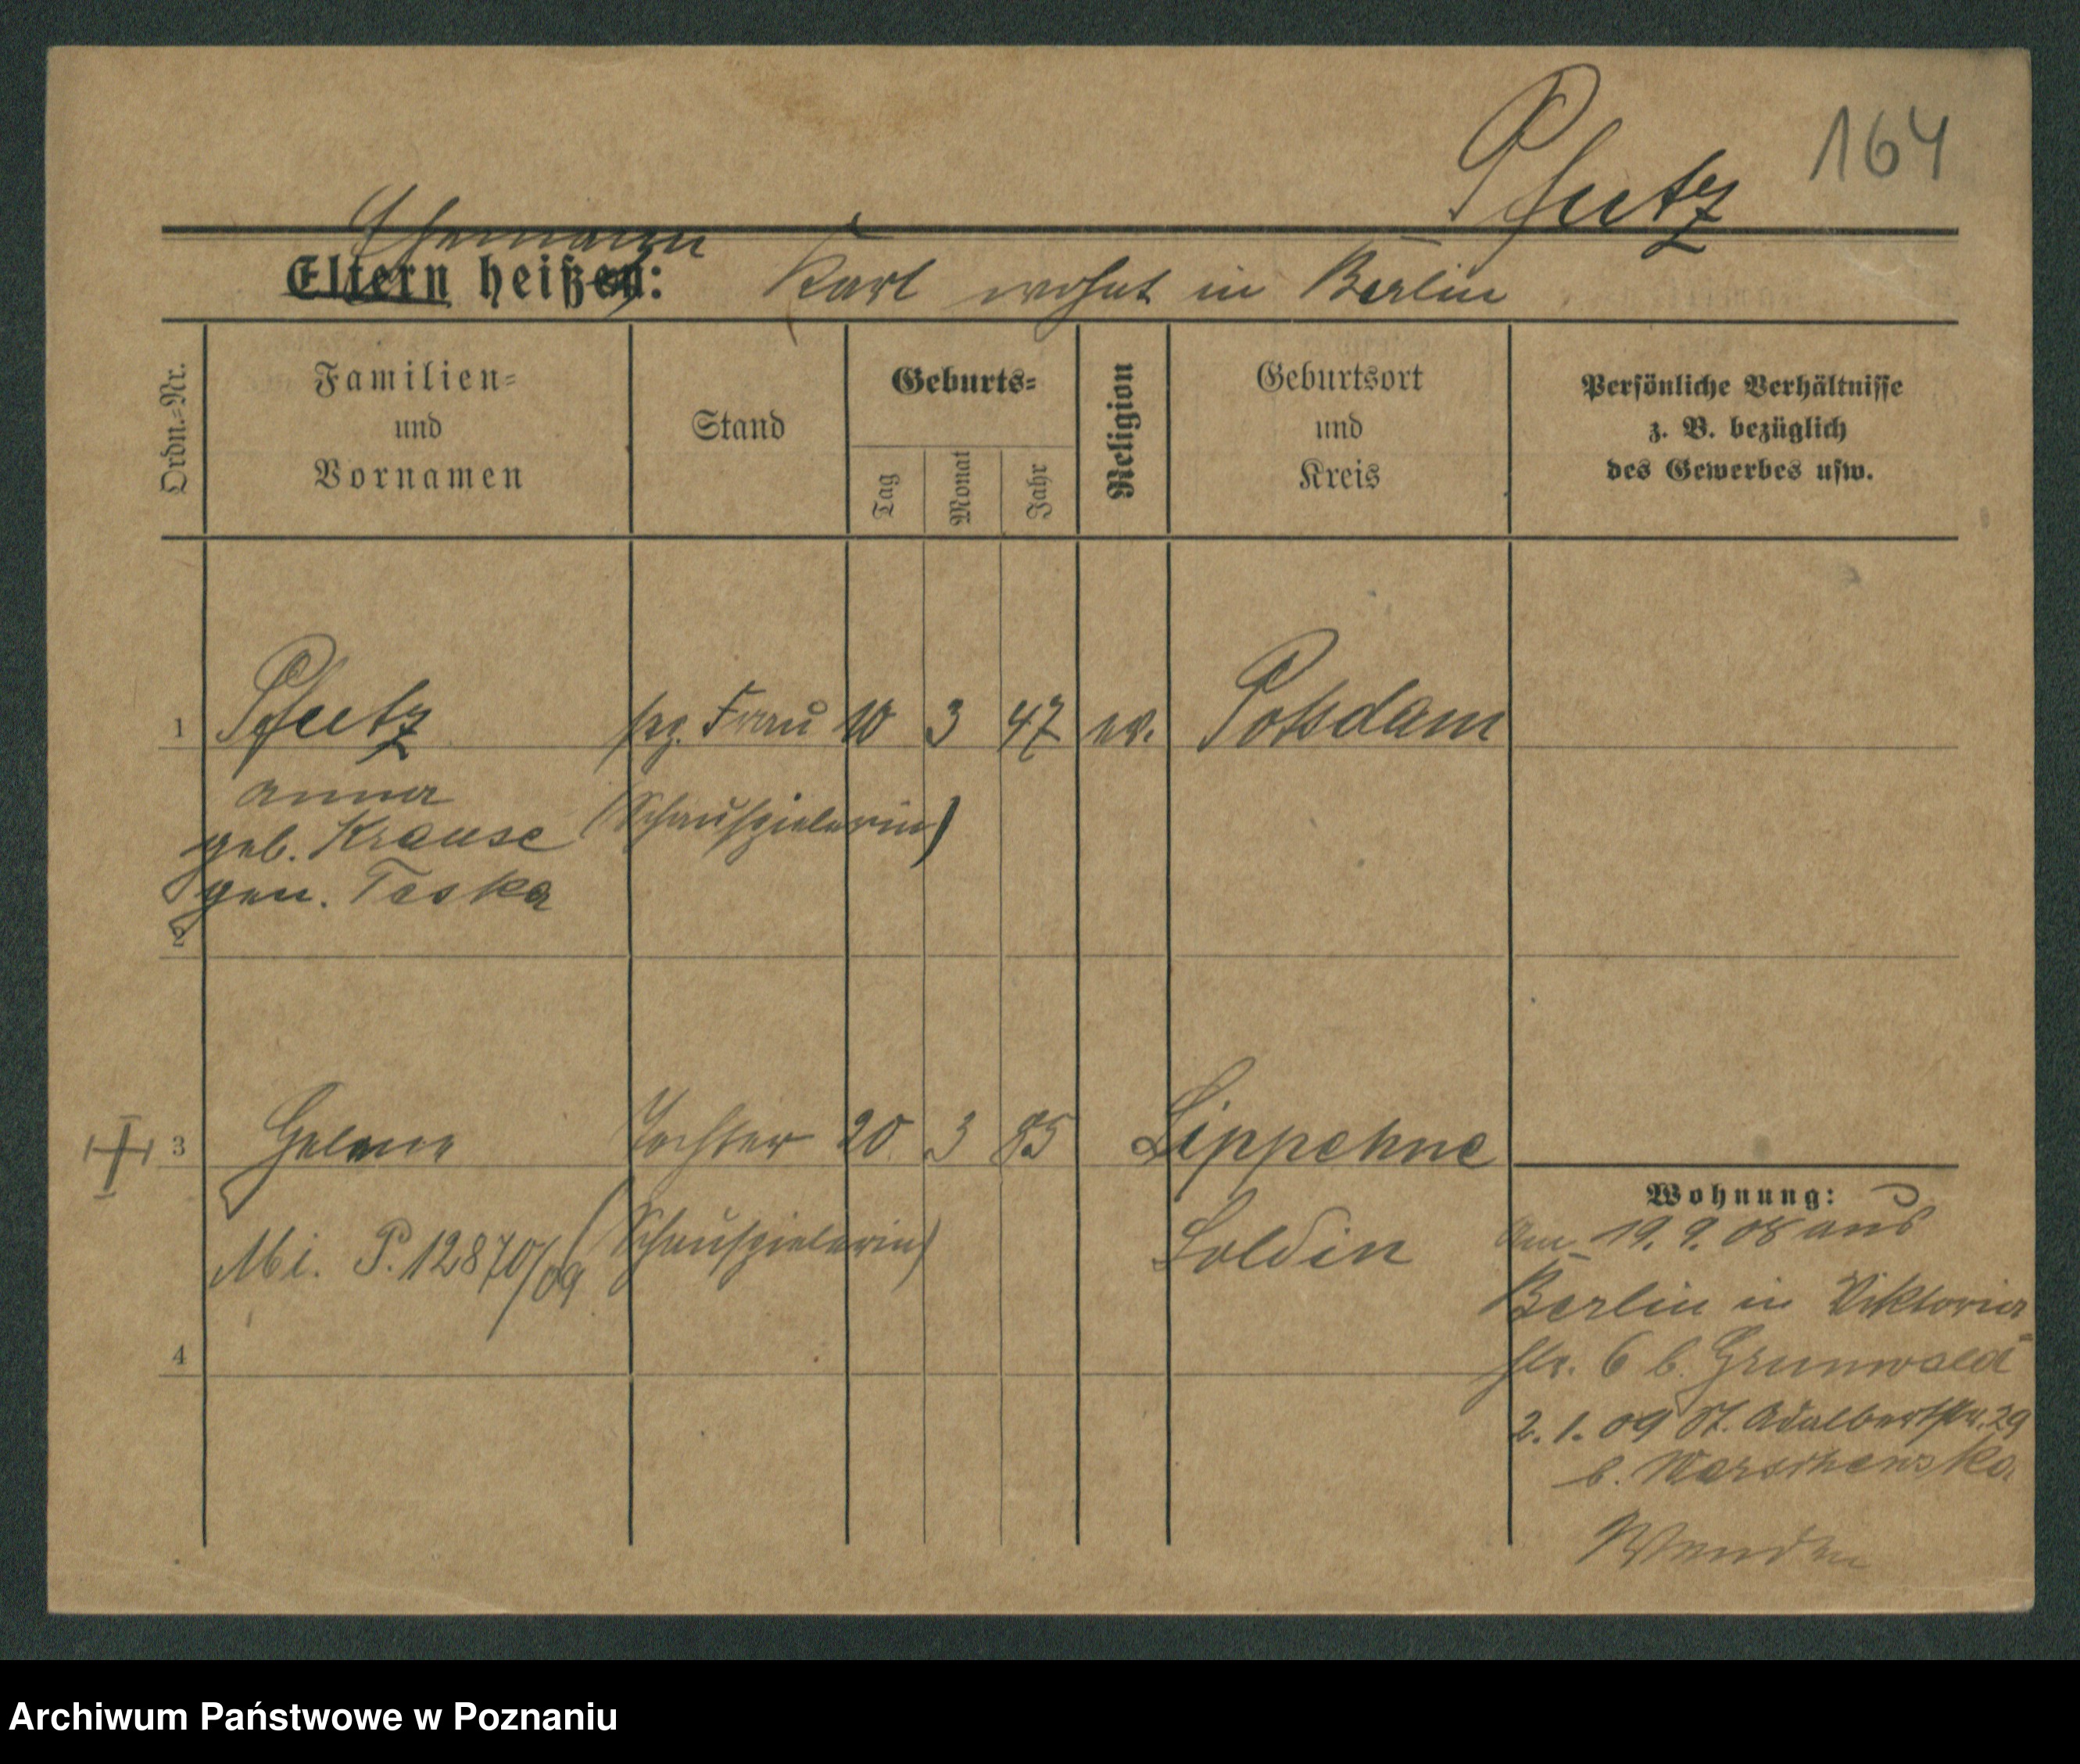 164
Pfeetz
Ehemann
Eltern heißen: Karl wohnt in Berlin
Ordn.=Nr.
Familien=
und
Vornamen
Stand
Geburts=
Tag
Monat
Jahr
Religion
Geburtsort
und
Kreis
Persönliche Verhältnisse
z. B. bezüglich
des Gewerbes usw.
1 Pfeetz Frau 10 3 47 ev. Potsdam
Anna (Schauspielerin)
geb. Krause
gen. Teska
2
3 Helene Tochter 20 3 85 Lippehne
(Schauspielerin) Soldin
Mi. P. 12870/09
4
Wohnung:
Am 19. 9. 08 aus
Berlin in Viktoria
str. 6 b. Grunwald
2. 1. 09 St. Adalbertstr. 29
b.
Wenden
Archiwum Państwowe w Poznaniu